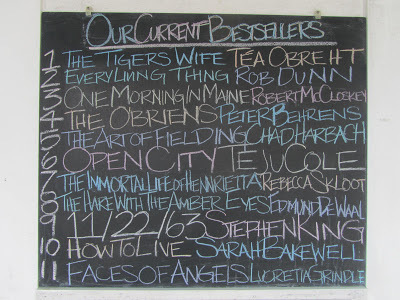 OUR CURRENT BESTSELLERS
1 THE TIGERS WIFE TÉA OBREHT
2 EVERY LIVING THING ROB DUNN
3 ONE MORNING IN MAINE ROBERT MCCLOSKEY
4 THE O'BRIENS PETER BEHRENS
5 THE ART OF FIELDING CHAD HARBACH
6 OPEN CITY TEJU COLE
7 THE IMMORTAL LIFE OF HENRIETTA REBECCA SKLOOT
8 THE HARE WITH THE AMBER EYES EDMUND DE WAAL
9 11/22/63 STEPHEN KING
10 HOW TO LIVE SARAH BAKEWELL
11 FACES OF ANGELS LUCRETIA GRINDLE